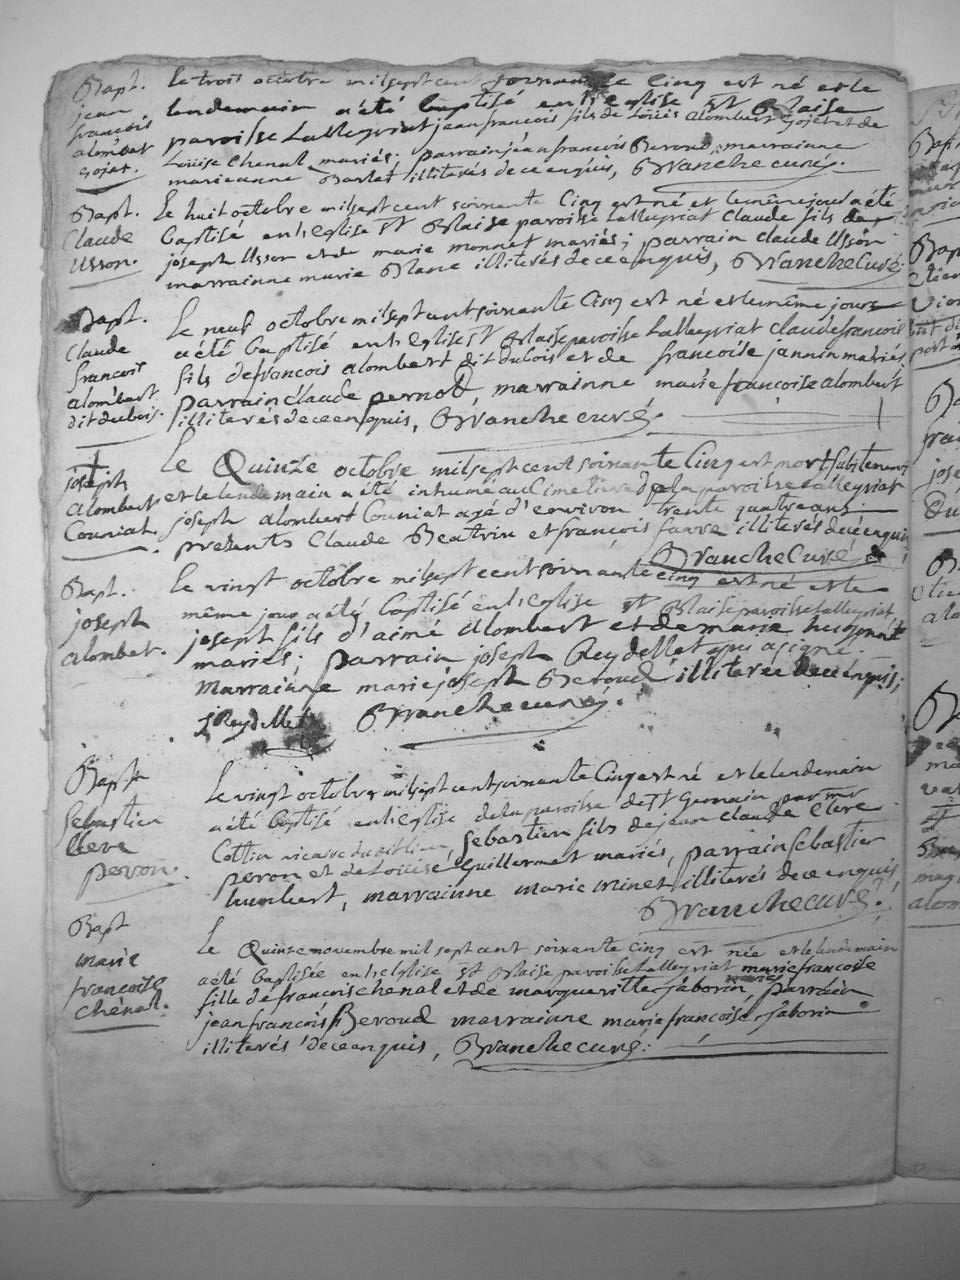 Bapt.
jean
francois
alombert
gojet.
le trois octobre mil sept cent soixante cinq est né et le
lendemain a été baptisé en l'eglise St Blaise
paroisse Lalleyriat jean francois fils de Loüis alombert gojet et de
Loüise chenal mariés; parrain jean francois Beroud, marrainne
marieanne illiterés de ce enquis, Branche curé.
Bapt.
Claude
Usson.
Le huit octobre mil sept cent soixante Cinq est né et le même jour a été
baptisé en l'eglise St Blaise paroisse Lalleyriat Claude fils de
joseph Usson et de marie monnet mariés; parrain claude Usson
marrainne marie Blanc illiterés de ce enquis, Branche Curé.
Bapt.
Claude
francois
alombert
dit dubois.
Le neuf octobre mil sept cent soixante Cinq est né et le même jour
a été baptisé en l'eglise St Blaise paroisse Lalleyriat Claude francois
fils de francois alombert dit dubois et de francoise jannin mariés
parrain claude pernod, marrainne marie francoise alombert
illiterés de ce enquis, Branche curé.
joseph
alombert
Couniat.
Le Quinze octobre mil sept cent soixante Cinq est mort subitement
et le lendemain a été inhumé au Cimetiere de la paroisse Lalleyriat
joseph alombert Couniat agé d'environ trente quatre ans
presents Claude Beatrin et francois favre illiterés de ce enquis
Branche Curé
Bapt.
joseph
alombet.
Le vingt octobre mil sept cent soixante cinq est né et le
même jour a été baptisé en l'eglise St Blaise paroisse Lalleyriat
joseph fils d'aimé alombert et de marie hugonet
mariés; parrain joseph Reydellet qui a signé.
Marrainne marie joseph Beroud illiterée de ce enquis;
J Reydellet Branche curé.
Bapt
Sebastien
Clere
perron.
Le vingt octobre mil sept cent soixante Cinq est né et le lendemain
a été baptisé en l'eglise de la paroisse de St Germain par mr
Cottin vicaire Sebastien fils de jean Claude Clere
peron et de Loüise Guillermet mariés, parrain Sebastien
humbert, marrainne marie minet illiterés de ce enquis
Branche curé.
Bapt
marie
francoise
Chénal.
Le Quinze novembre mil sept cent soixante Cinq est née et le lendemain
a été baptisée en l'eglise St Blaise paroisse Lalleyriat marie francoise
fille de francois chenal et de margueritte jaborin mariés parrain
jean francois Beroud marrainne marie francoise jaborin
illiterés de ce enquis, Branche curé.